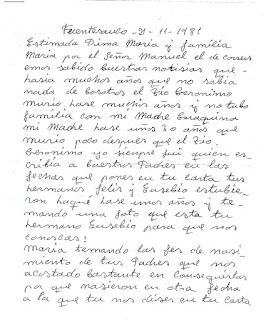 Fuentesauco -21-11-1981
Estimada Prima Maria y familia
Maria por el Señor Manuel el de correus
emos sabido buestras notisias que
hasia muchos años que no sabia
nada de bosotros el Tio Geronimo
murio hase muchos años y no tubo
familia con mi Madre Guaquina
mi Madre hase unos 30 años que
murio poco despues que el Tio
Geronimo yo siempre fui quien es
cribia a buestros Padres en las
fechas que pones en tu carta tus
hermanos felis y Eusebio estubie
ron haqui hase unos años y te
mando una foto que esta tu
hermano Eusebio para que nos
conoscas!
Maria temando las fes de nasi
miento de tus Padres que nos
acostado bastante en conseguirlas
por que nasieron en otra fecha
a la que tu nos dises en tu carta